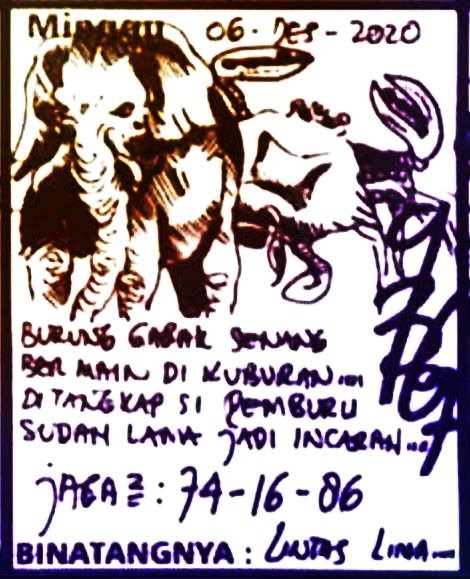 Minggu 06 - DES - 2020
BURUNG GAGAK SENANG
BERMAIN DI KUBURAN....
DITANGKAP SI PEMBURU
SUDAH LAMA JADI INCARAN....
JAGA2 : 74-16-86
BINATANGNYA : LINTAS LIMA...